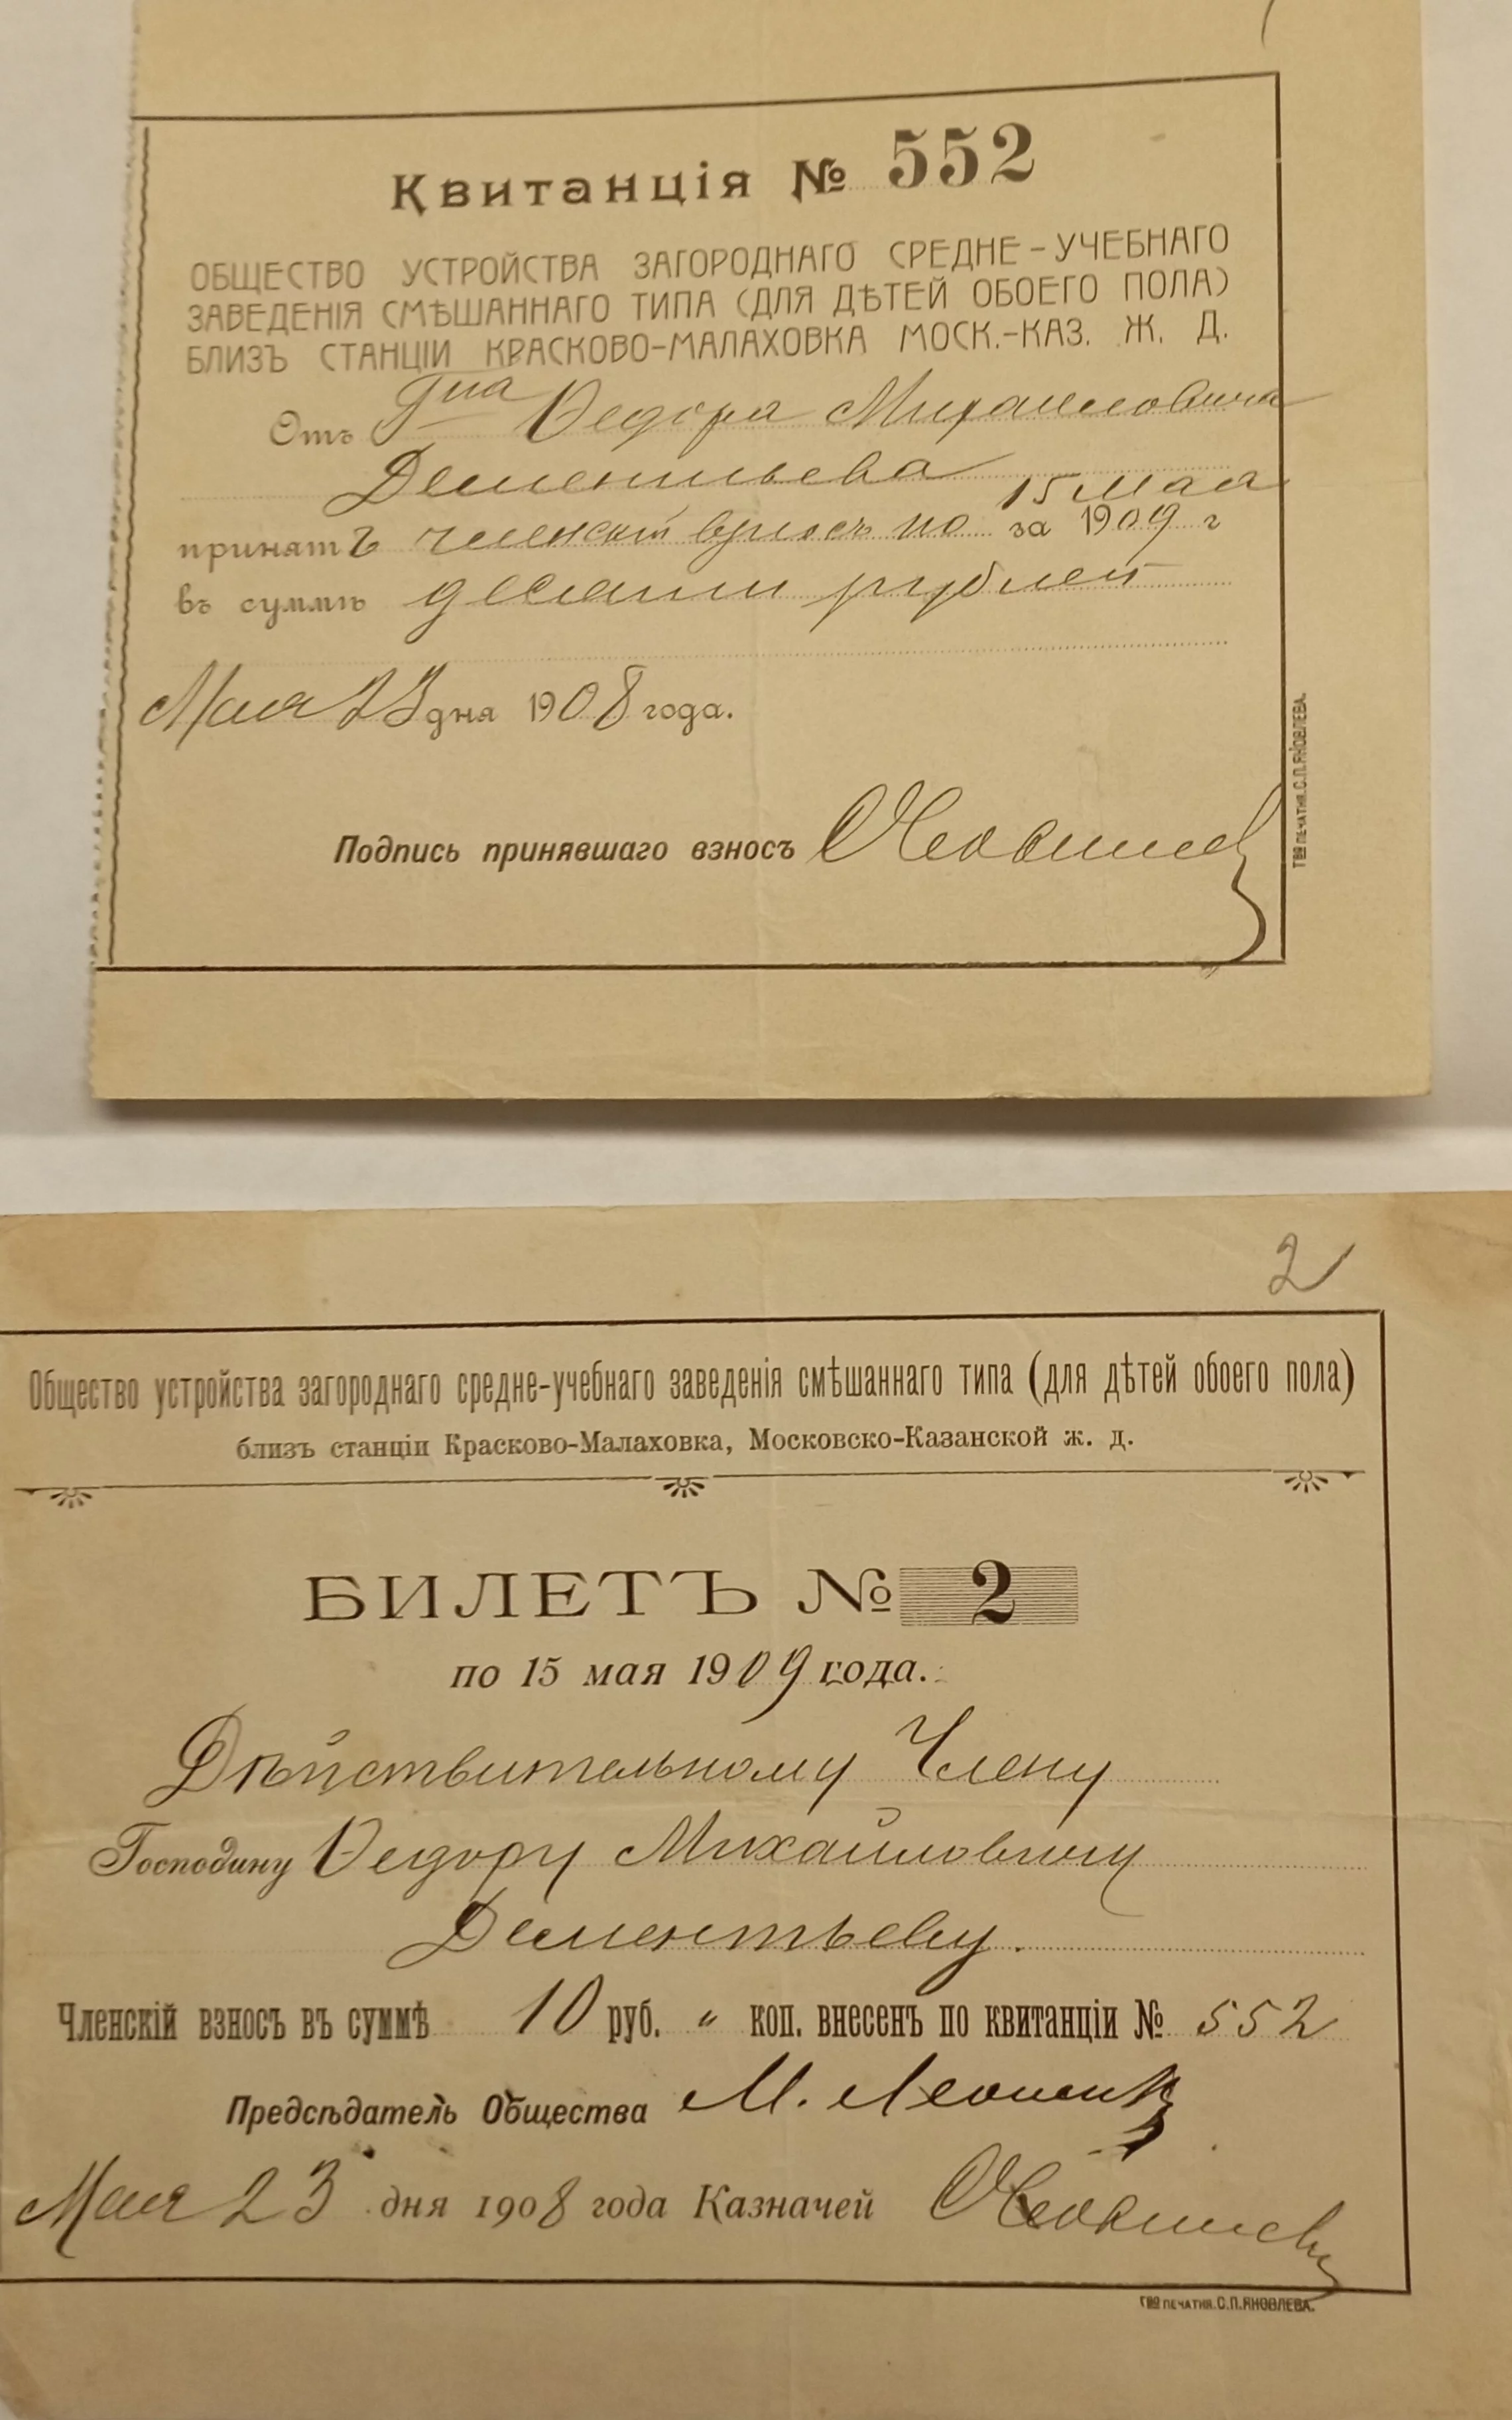 Квитанція № 552
ОБЩЕСТВО УСТРОЙСТВА ЗАГОРОДНАГО СРЕДНЕ-УЧЕБНАГО
ЗАВЕДЕНІЯ СМѢШАННАГО ТИПА (ДЛЯ ДѢТЕЙ ОБОЕГО ПОЛА)
БЛИЗЪ СТАНЦІИ КРАСКОВО-МАЛАХОВКА МОСК.-КАЗ. Ж. Д.
Отъ Гна Ѳедора Михайловича
Дементьева
принятъ членскій взносъ по 15 мая за 1909 г
въ суммѣ десяти рублей
Мая 23 дня 1908 года.
Подпись принявшаго взносъ
Т-во ПЕЧАТНЯ. С.П. ЯКОВЛЕВА.
2
Общество устройства загороднаго средне-учебнаго заведенія смѣшаннаго типа (для дѣтей обоего пола)
близъ станціи Красково-Малаховка, Московско-Казанской ж. д.
БИЛЕТЪ № 2
по 15 мая 1909 года.
Дѣйствительному Члену
Господину Ѳедору Михайловичу
Дементьеву.
Членскій взносъ въ суммѣ 10 руб. „ коп. внесенъ по квитанціи № 552
Предсѣдатель Общества М.
Мая 23 дня 1908 года Казначей
Т-во ПЕЧАТНЯ. С.П. ЯКОВЛЕВА.